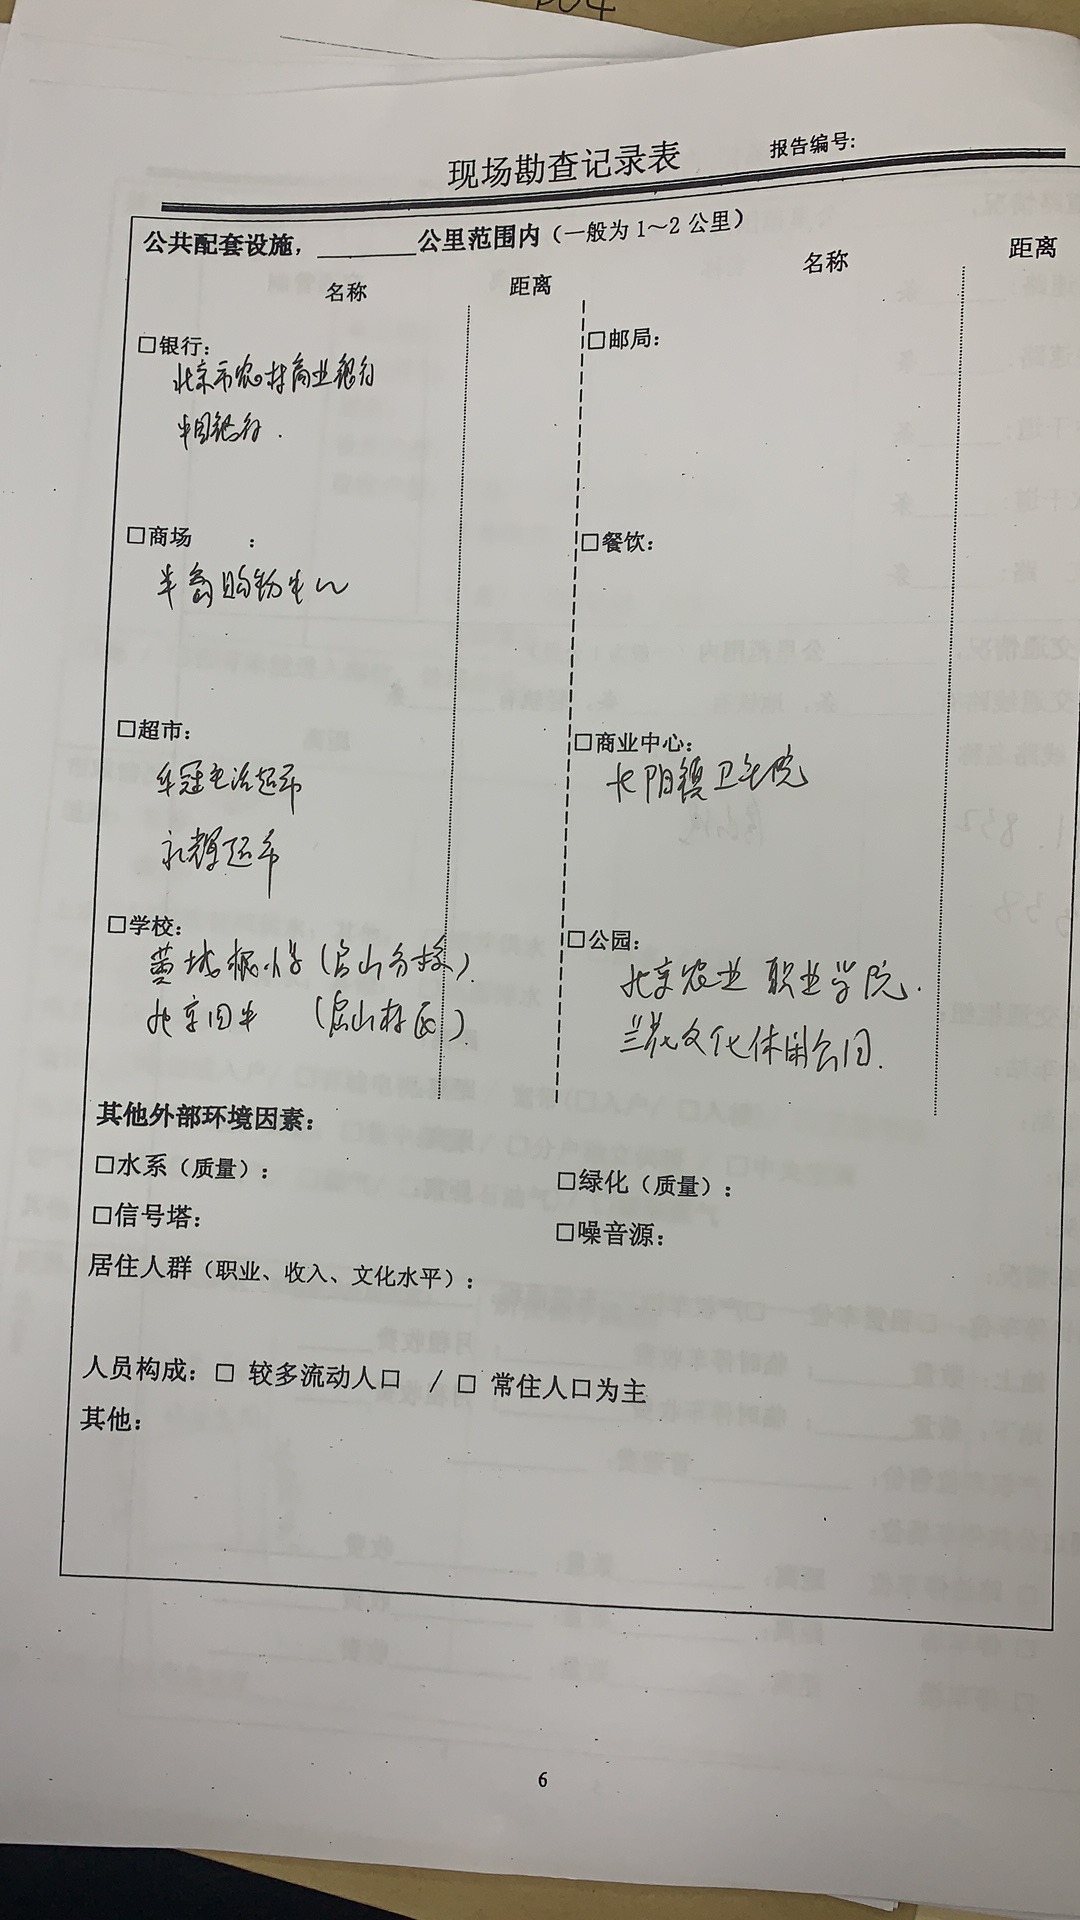 现场勘查记录表 报告编号:
公共配套设施，________公里范围内（一般为 1～2 公里）
名称 距离 名称 距离
□银行： □邮局：
北京市农村商业银行
中国银行.
□商场 ： □餐饮：
购物中心
□超市： □商业中心：
华冠生活超市 长阳镇卫生院
永辉超市
□学校： □公园：
黄城根小学（房山分校） 北京农业职业学院.
北京四中（房山校区） 兰花文化休闲公园.
其他外部环境因素：
□水系（质量）： □绿化（质量）：
□信号塔： □噪音源：
居住人群（职业、收入、文化水平）：
人员构成：□ 较多流动人口 / □ 常住人口为主
其他：
6